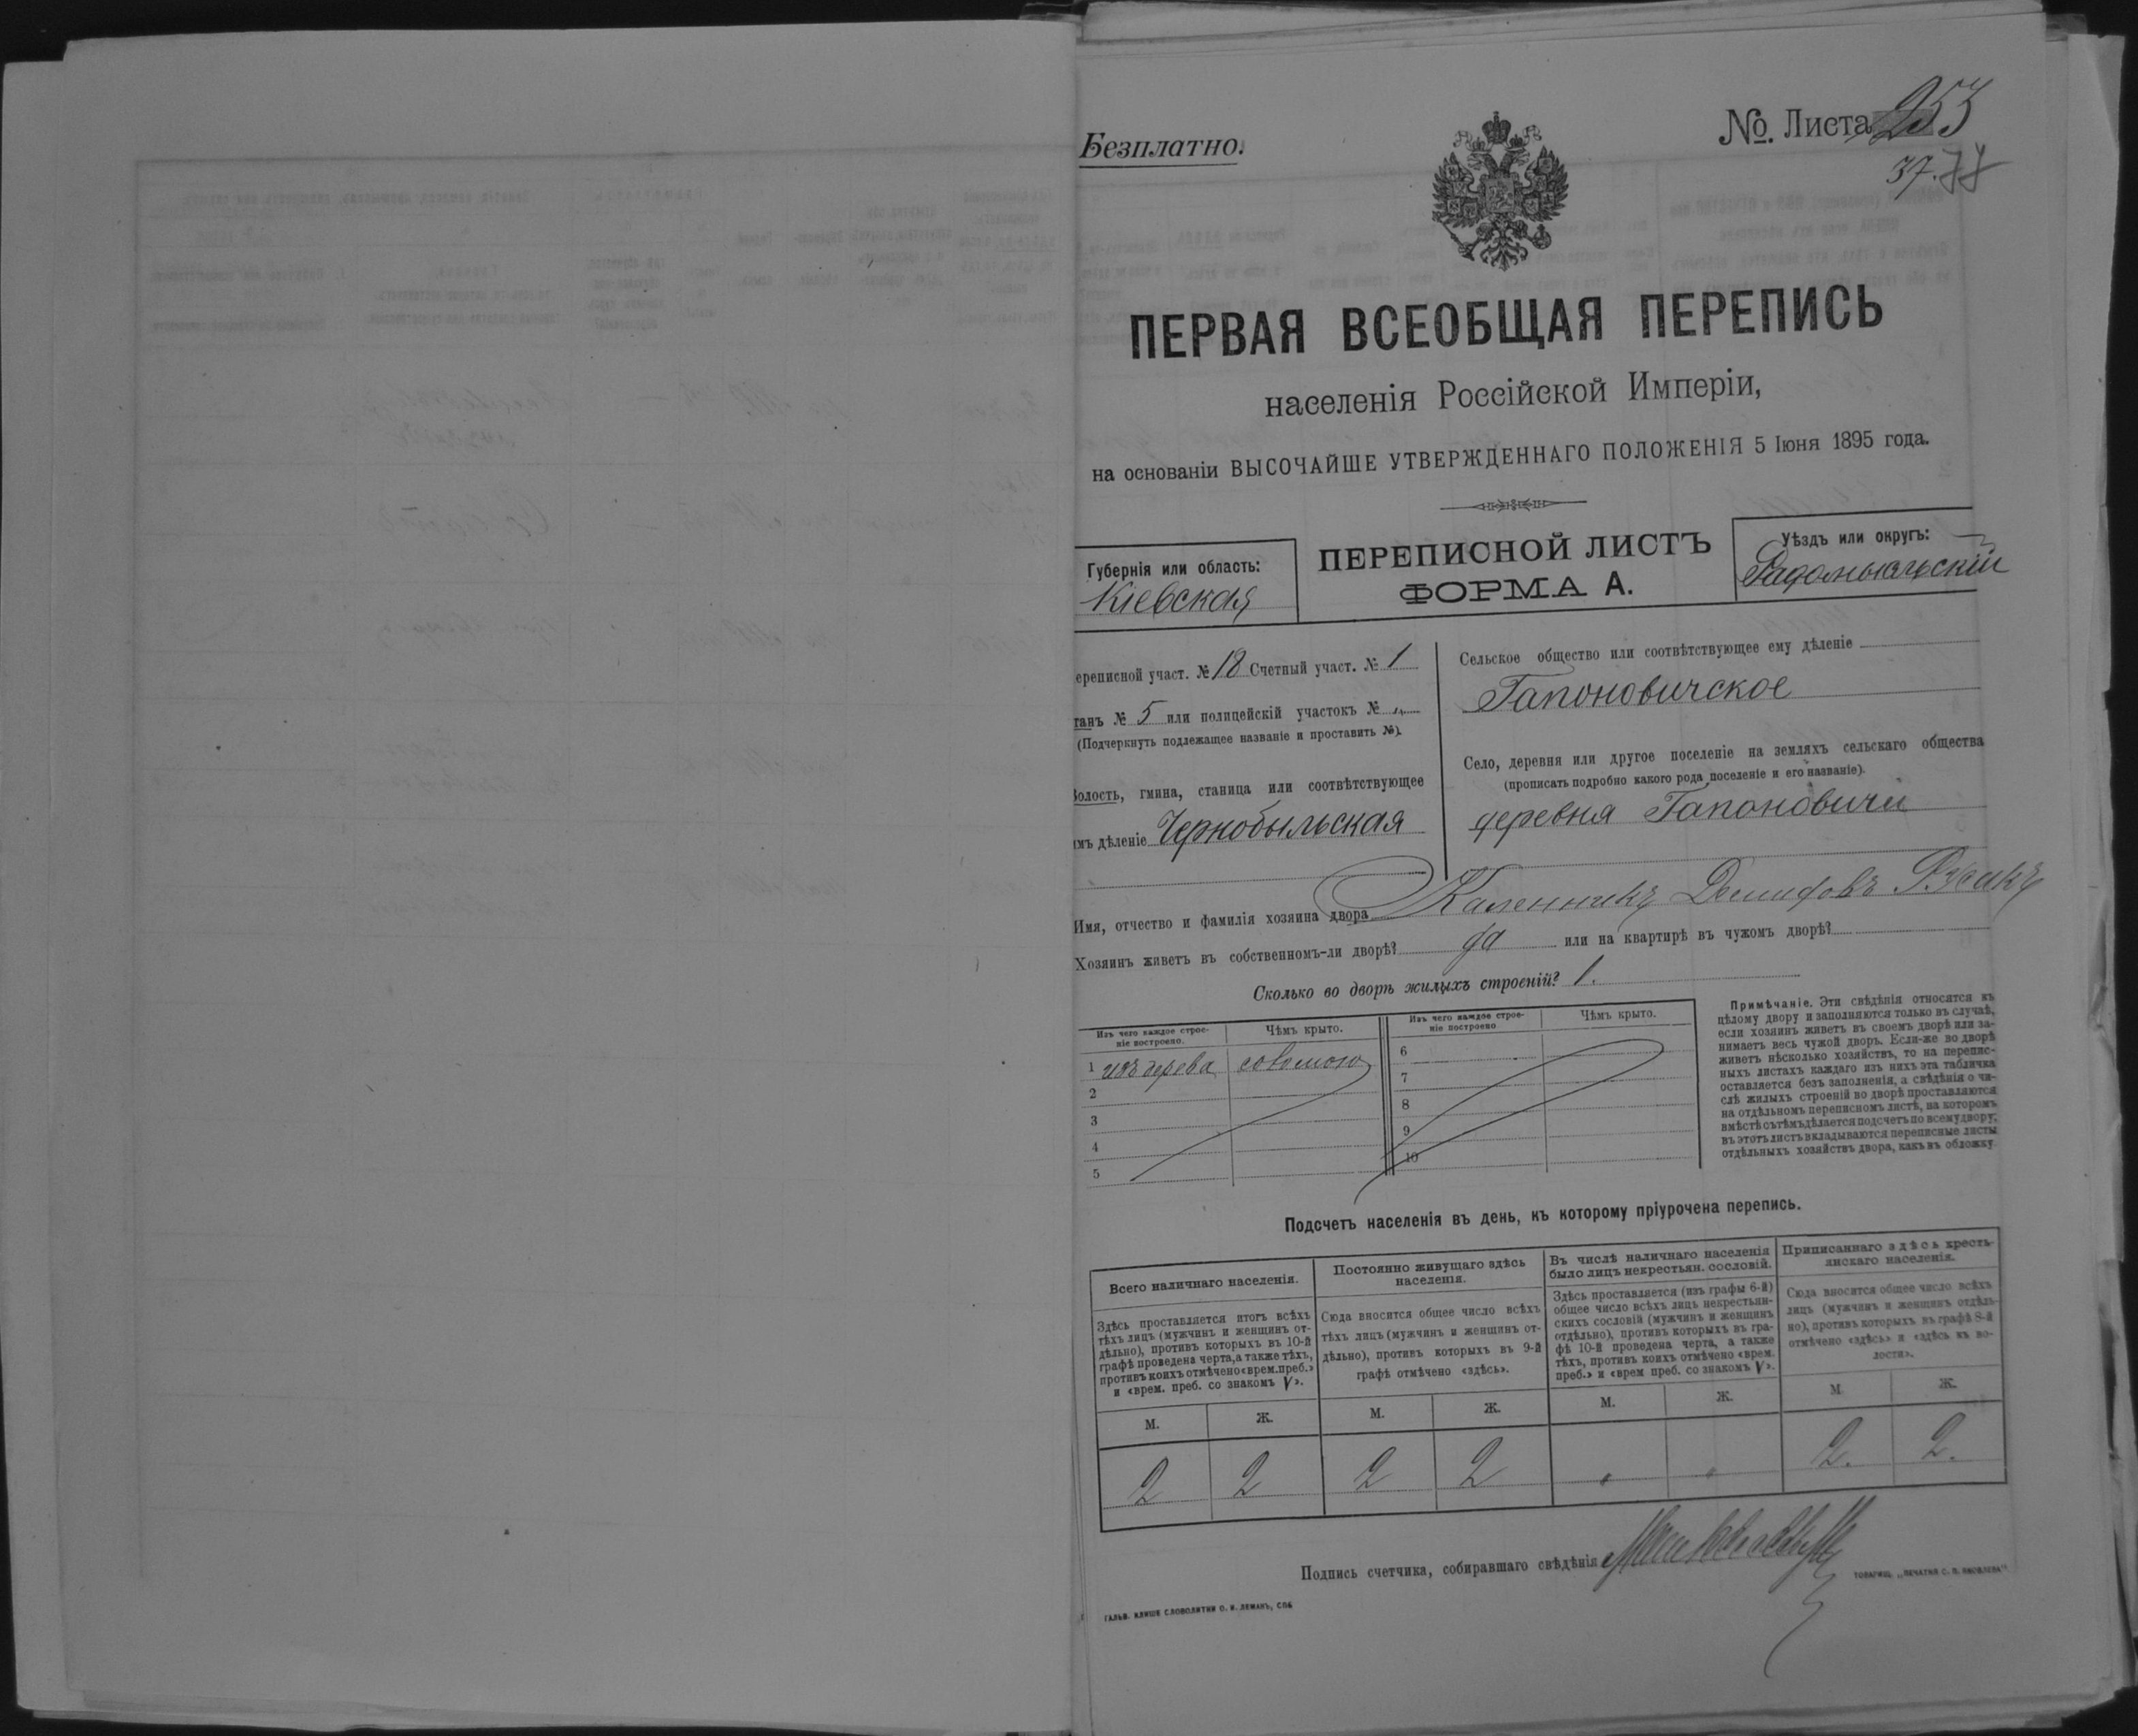 Безплатно.
№ Листа 253
37.
ПЕРВАЯ ВСЕОБЩАЯ ПЕРЕПИСЬ
населенія Россійской Имперіи,
на основаніи ВЫСОЧАЙШЕ УТВЕРЖДЕННАГО ПОЛОЖЕНІЯ 5 Іюня 1895 года.
Губернія или область:
Кіевская
ПЕРЕПИСНОЙ ЛИСТЪ
ФОРМА А.
Уѣздъ или округъ:
Радомысльскій
ереписной участ. № 18 Счетный участ. № 1
танъ № 5 или полицейскій участокъ № „
(Подчеркнуть подлежащее названіе и проставить №).
Волость, гмина, станица или соотвѣтствующее
имъ дѣленіе Чернобыльская
Сельское общество или соотвѣтствующее ему дѣленіе
Гапоновичское
Село, деревня или другое поселеніе на земляхъ сельскаго общества
(прописать подробно какого рода поселеніе и его названіе).
деревня Гапоновичи
Имя, отчество и фамилія хозяина двора Каленникъ Демидовъ
Хозяинъ живетъ въ собственномъ-ли дворѣ? да или на квартирѣ въ чужомъ дворѣ?
Сколько во дворѣ жилыхъ строеній? 1.
Изъ чего каждое строе-
ніе построено.
Чѣмъ крыто.
Изъ чего каждое строе-
ніе построено
Чѣмъ крыто.
1 изъ дерева соломою
2
3
4
5
6
7
8
9
10
Примѣчаніе. Эти свѣдѣнія относятся къ
цѣлому двору и заполняются только въ случаѣ,
если хозяинъ живетъ въ своемъ дворѣ или за-
нимаетъ весь чужой дворъ. Если-же во дворѣ
живетъ нѣсколько хозяйствъ, то на перепис-
ныхъ листахъ каждаго изъ нихъ эта табличка
оставляется безъ заполненія, а свѣдѣнія о чи-
слѣ жилыхъ строеній во дворѣ проставляются
на отдѣльномъ переписномъ листѣ, на которомъ
вмѣстѣ съ тѣмъ дѣлается подсчетъ по всему двору;
въ этотъ листъ вкладываются переписные листы
отдѣльныхъ хозяйствъ двора, какъ въ обложку
Подсчетъ населенія въ день, къ которому пріурочена перепись.
Всего наличнаго населенія.
Здѣсь проставляется итогъ всѣхъ
тѣхъ лицъ (мужчинъ и женщинъ от-
дѣльно), противъ которыхъ въ 10-й
графѣ проведена черта, а также тѣхъ,
противъ коихъ отмѣчено «врем. преб.»
и «врем. преб. со знакомъ V».
Постоянно живущаго здѣсь
населенія.
Сюда вносится общее число всѣхъ
тѣхъ лицъ (мужчинъ и женщинъ от-
дѣльно), противъ которыхъ въ 9-й
графѣ отмѣчено «здѣсь».
Въ числѣ наличнаго населенія
было лицъ некрестьян. сословій.
Здѣсь проставляется (изъ графы 6-й)
общее число всѣхъ лицъ некрестьян-
скихъ сословій (мужчинъ и женщинъ
отдѣльно), противъ которыхъ въ гра-
фѣ 10-й проведена черта, а также
тѣхъ, противъ коихъ отмѣчено «врем.
преб.» и «врем преб. со знакомъ V».
Приписаннаго здѣсь кресть-
янскаго населенія.
Сюда вносится общее число всѣхъ
лицъ (мужчинъ и женщинъ отдѣль-
но), противъ которыхъ въ графѣ 8-й
отмѣчено «здѣсь» и «здѣсь къ во-
лости».
М. Ж. М. Ж. М. Ж. М. Ж.
2 2 2 2 „ „ 2. 2.
Подпись счетчика, собиравшаго свѣдѣнія
ТОВАРИЩ. „ПЕЧАТНЯ С. П. ЯКОВЛЕВА".
ГАЛЬВ. КЛИШЕ СЛОВОЛИТНИ О. И. ЛЕМАНЪ, СПБ